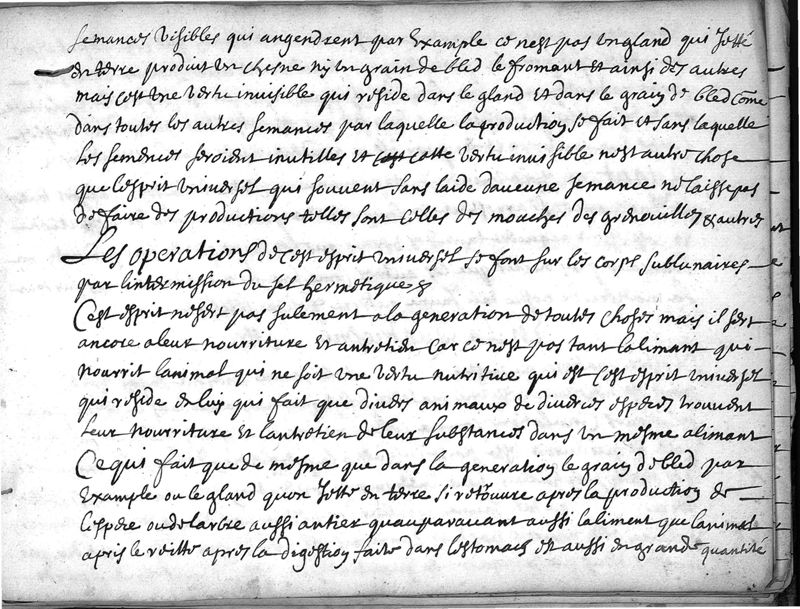 semances visibles qui angendrent par Example ce nest pas un gland qui Jetté
en terre produit un chesne ny un grain de bled le froment Et ainsi des autres
mais cest une vertu invisible qui reside dans le gland Et dans le grain de bled cõme
dans toutes les autres semances par laquelle la production se fait et sans laquelle
les semences seroient inutilles Et cette vertu invisible nest autre chose
que lesprit universel qui souvent sans laide daucune semance ne laisse pas
de faire des productions telles sont celles des mouches des grenouilles & autres
Les operations de cest esprit universel se font sur les corps sublunaires
par lintermission du sel hermetique &
Cest esprit nesert pas sulement a la generation de toutes choses mais il sert
ancore a leur nourriture Et antretien car ce nest pas tant lalimant qui
nourrit lanimal qui ne soit une vertu nutritive qui est cest esprit universel
qui reside en luy qui fait que divers animaux de diverces especes trouvent
leur nourriture Et lantretien de leur substances dans un mesme alimant
Ce qui fait que de mesme que dans la generation le grain de bled par
Example ou le gland quon Jette en terre si retouure apres la production de
lespece ou de larbre aussi antier quauparavant aussi laliment que lanimal
apris le reitte apres la digestion faite dans lestomach est aussi en grande quantité